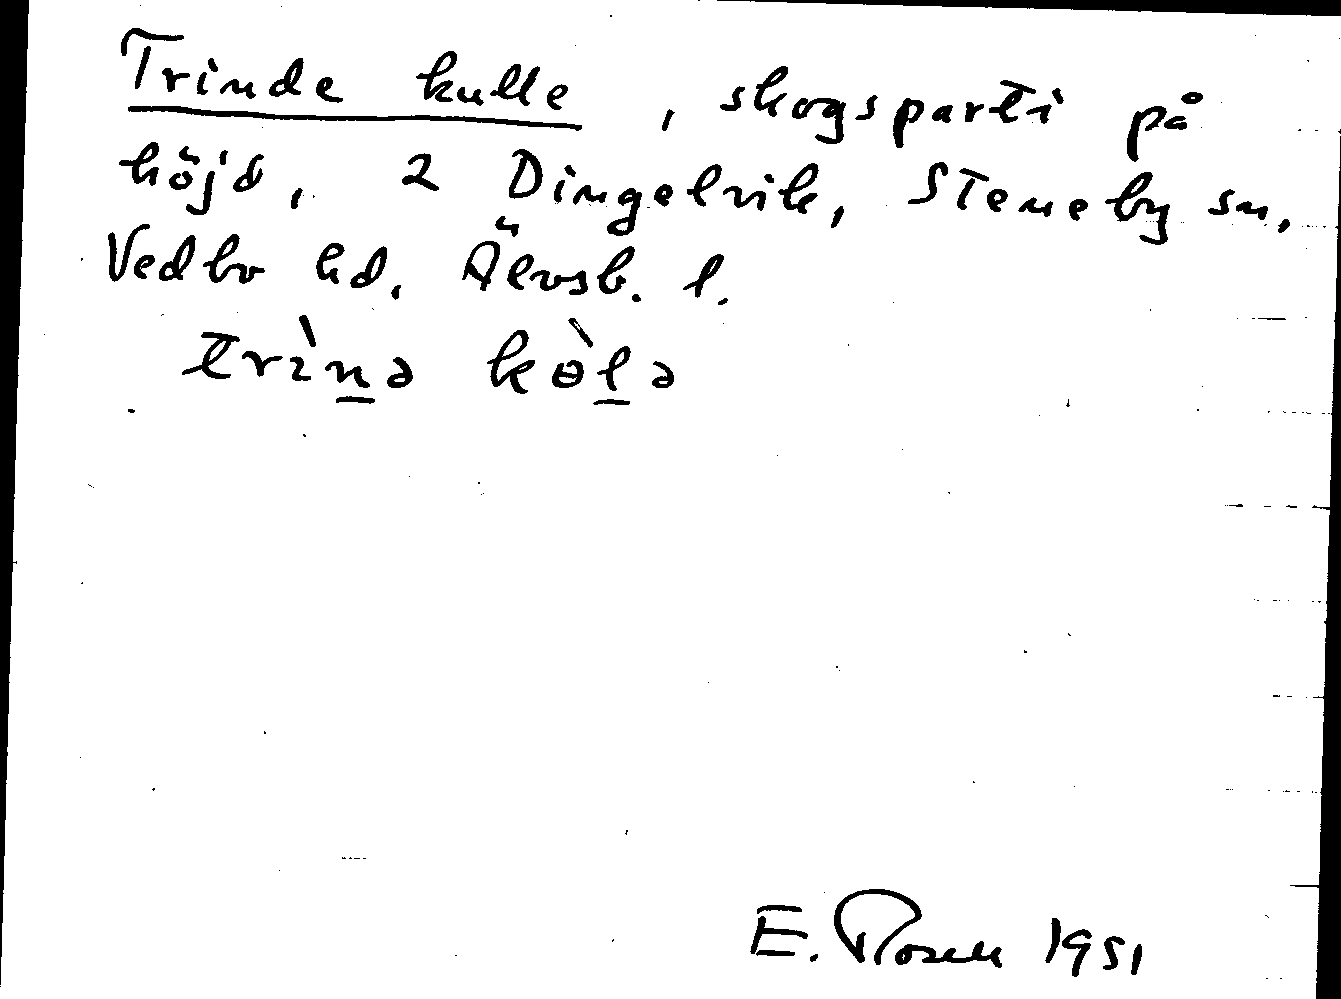 Trinde kulle, skogsparti på
höjd, 2 Dingelvik, Steneby sn,
Vedbo hd, Älvsb. l.
trìnə kɵ̀lə
E. Rosell 1951